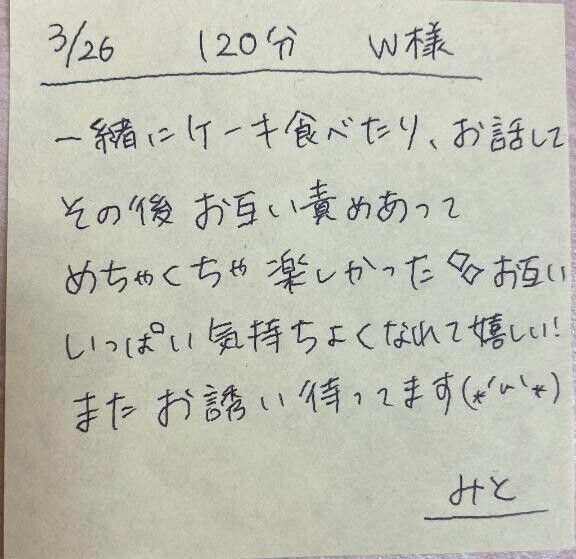 3/26 120分 W様
一緒にケーキ食べたり、お話して
その後 お互い責めあって
めちゃくちゃ 楽しかった◇◇お互い
いっぱい気持ちよくなれて嬉しい!
また お誘い待ってます(*'ω'*)
みと